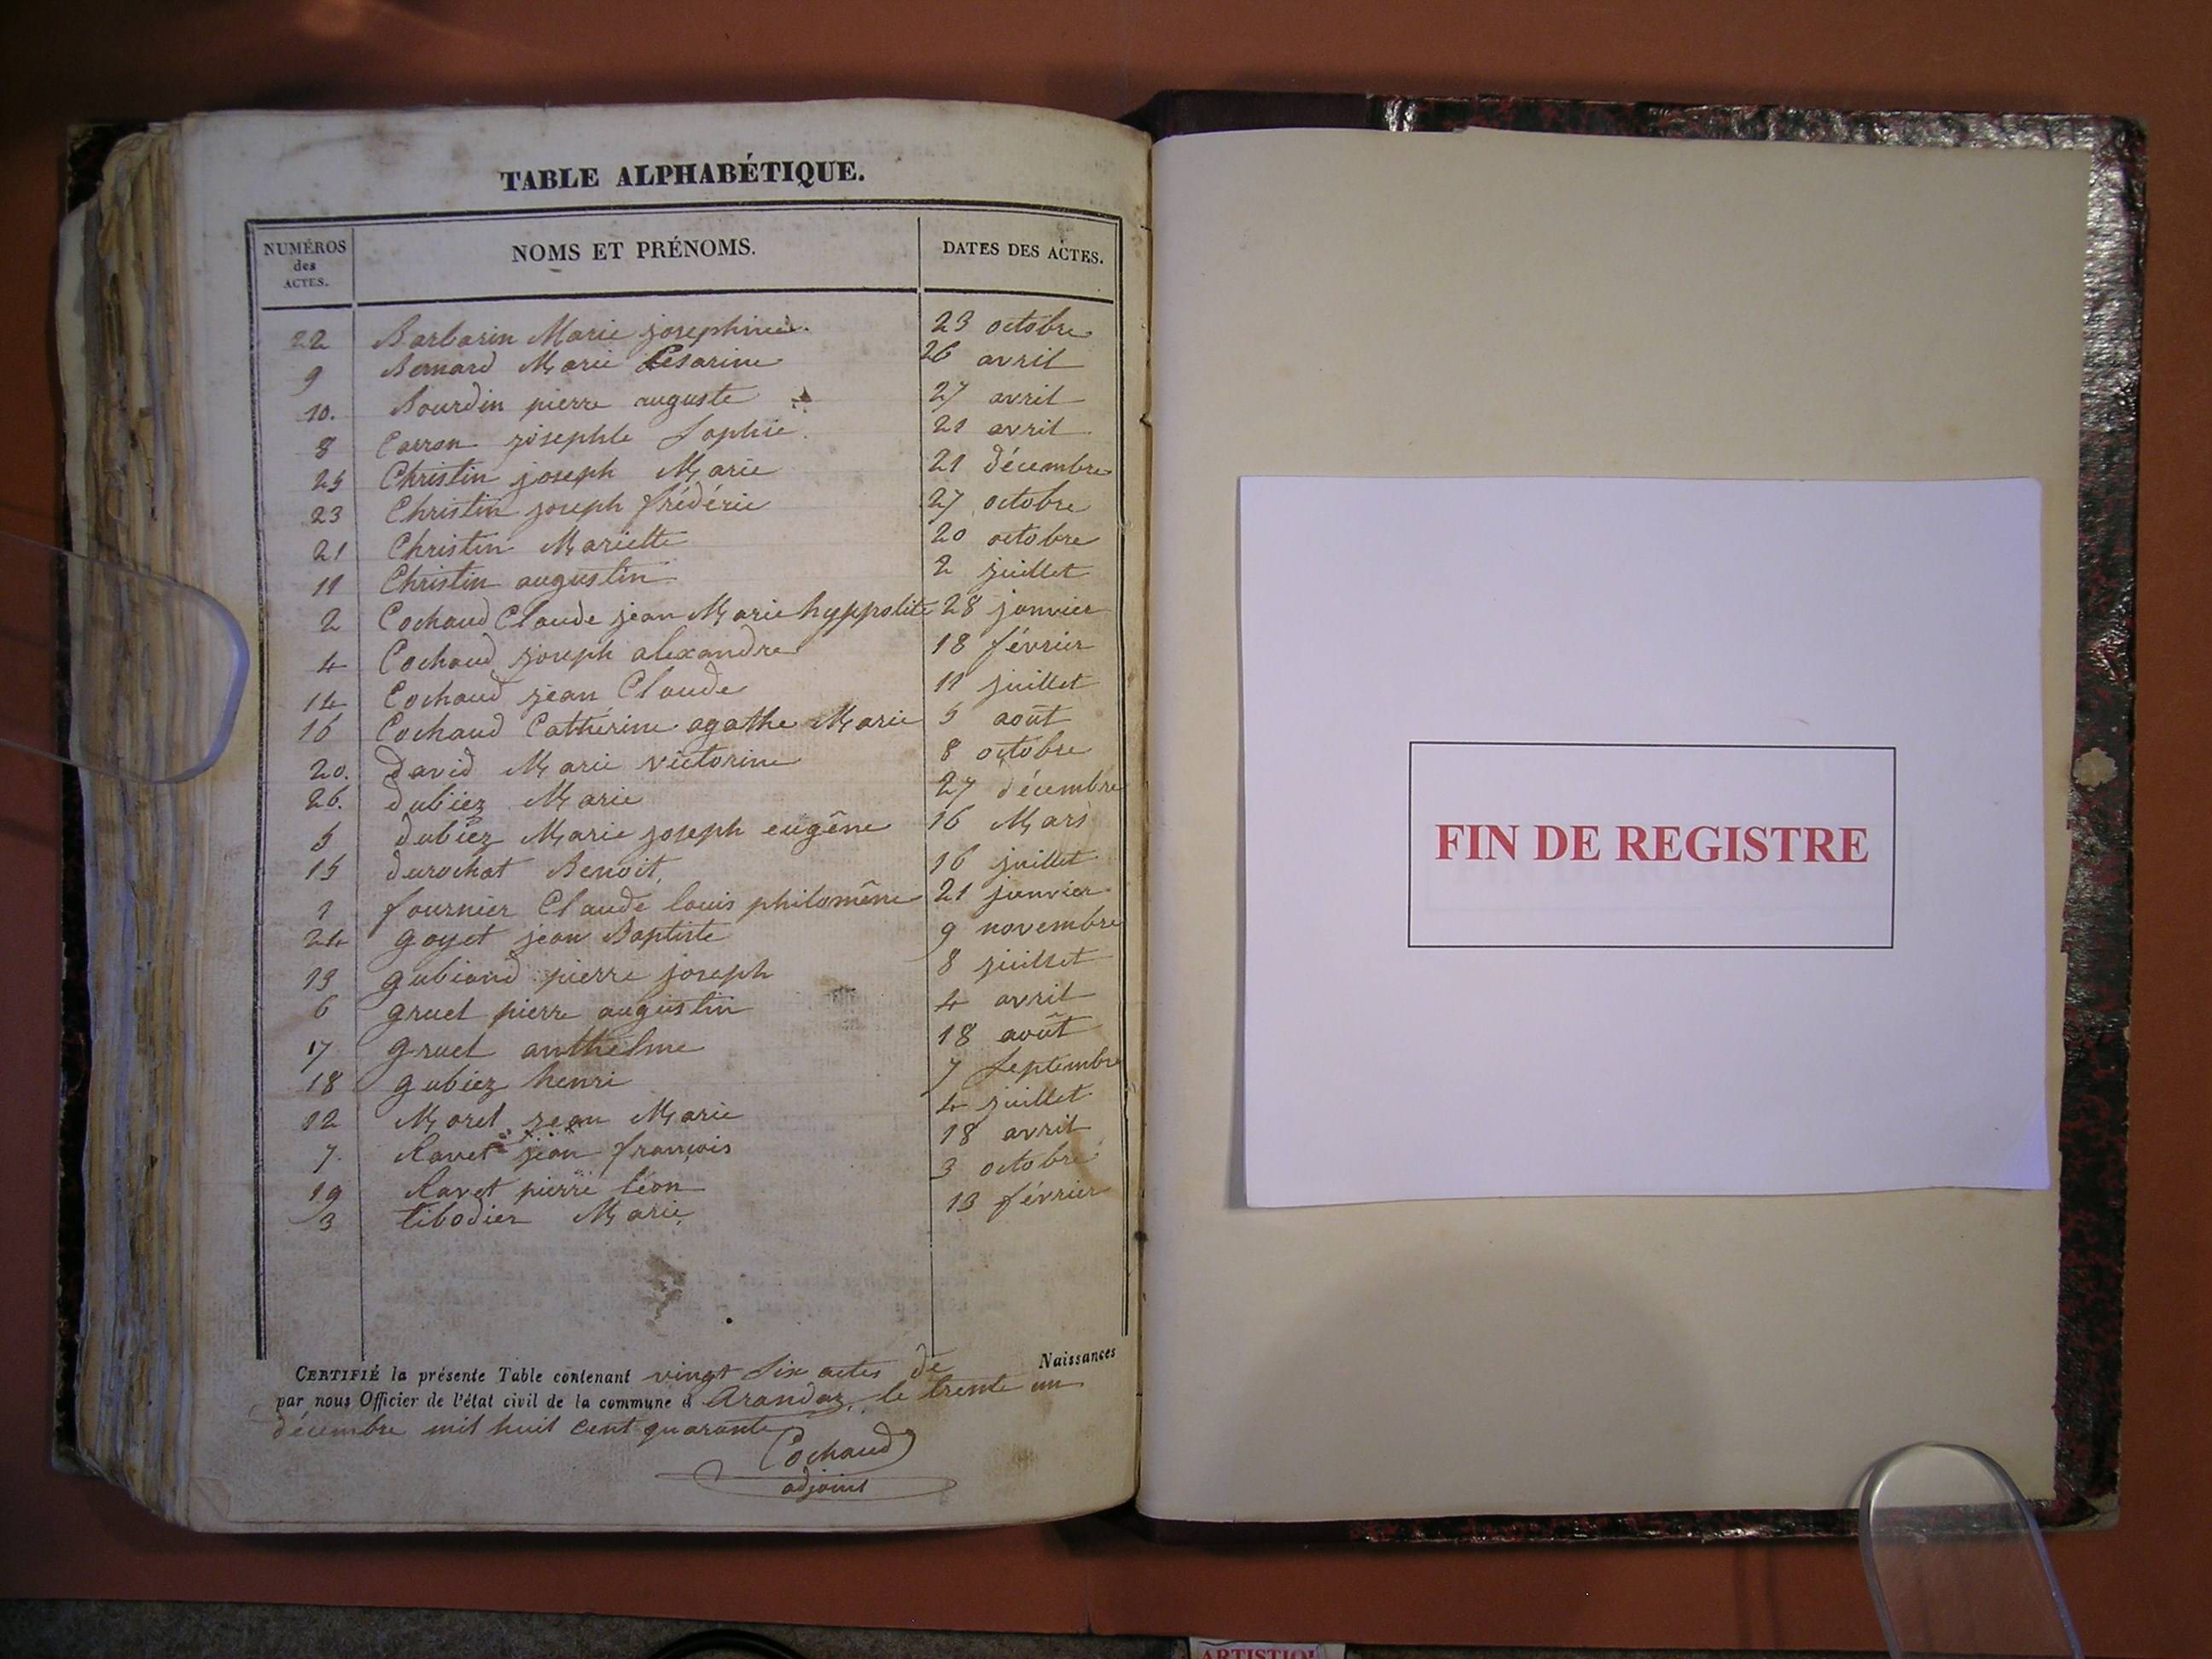 TABLE ALPHABÉTIQUE.
NUMÉROS des ACTES. NOMS ET PRÉNOMS. DATES DES ACTES.
22 Barbarin Marie josephine. 23 octobre
9 Bernard Marie Césarine 26 avril
10. Bourdin pierre auguste 27 avril
8 Carron josephte Sophie. 21 avril
25 Christin joseph Marie 21 décembre
23 Christin joseph frédéric 27 octobre
21 Christin Mariette 20 octobre
11 Christin augustin 2 juillet
2 Cochaud Claude jean Marie hyppolite 28 janvier
4 Cochaud joseph alexandre 18 février
14 Cochaud jean Claude 11 juillet
16 Cochaud Catherine agathe Marie 5 août
20. David Marie victorine 8 octobre
26. dubiez Marie 27 décembre
5 dubiez Marie joseph eugêne 16 Mars
15 durochat Benoit, 16 juillet
1 fournier Claude louis philomêne 21 janvier
24 goyet jean Baptiste 9 novembre
13 gubiand pierre joseph 8 juillet
6 gruel pierre augustin 4 avril
17 gruel anthelme 18 août
18 gubiez henri 7 Septembre
12 Morel jean Marie 4 juillet
7. Ravet jean françois 18 avril
19 Ravet pierre léon 3 octobre
3 tibodier Marie 13 février
CERTIFIÉ la présente Table contenant vingt Six actes de Naissances
par nous Officier de l'état civil de la commune d Arandaz, le trente un
décembre mil huit cent quarante
Cochaud
adjoint
FIN DE REGISTRE